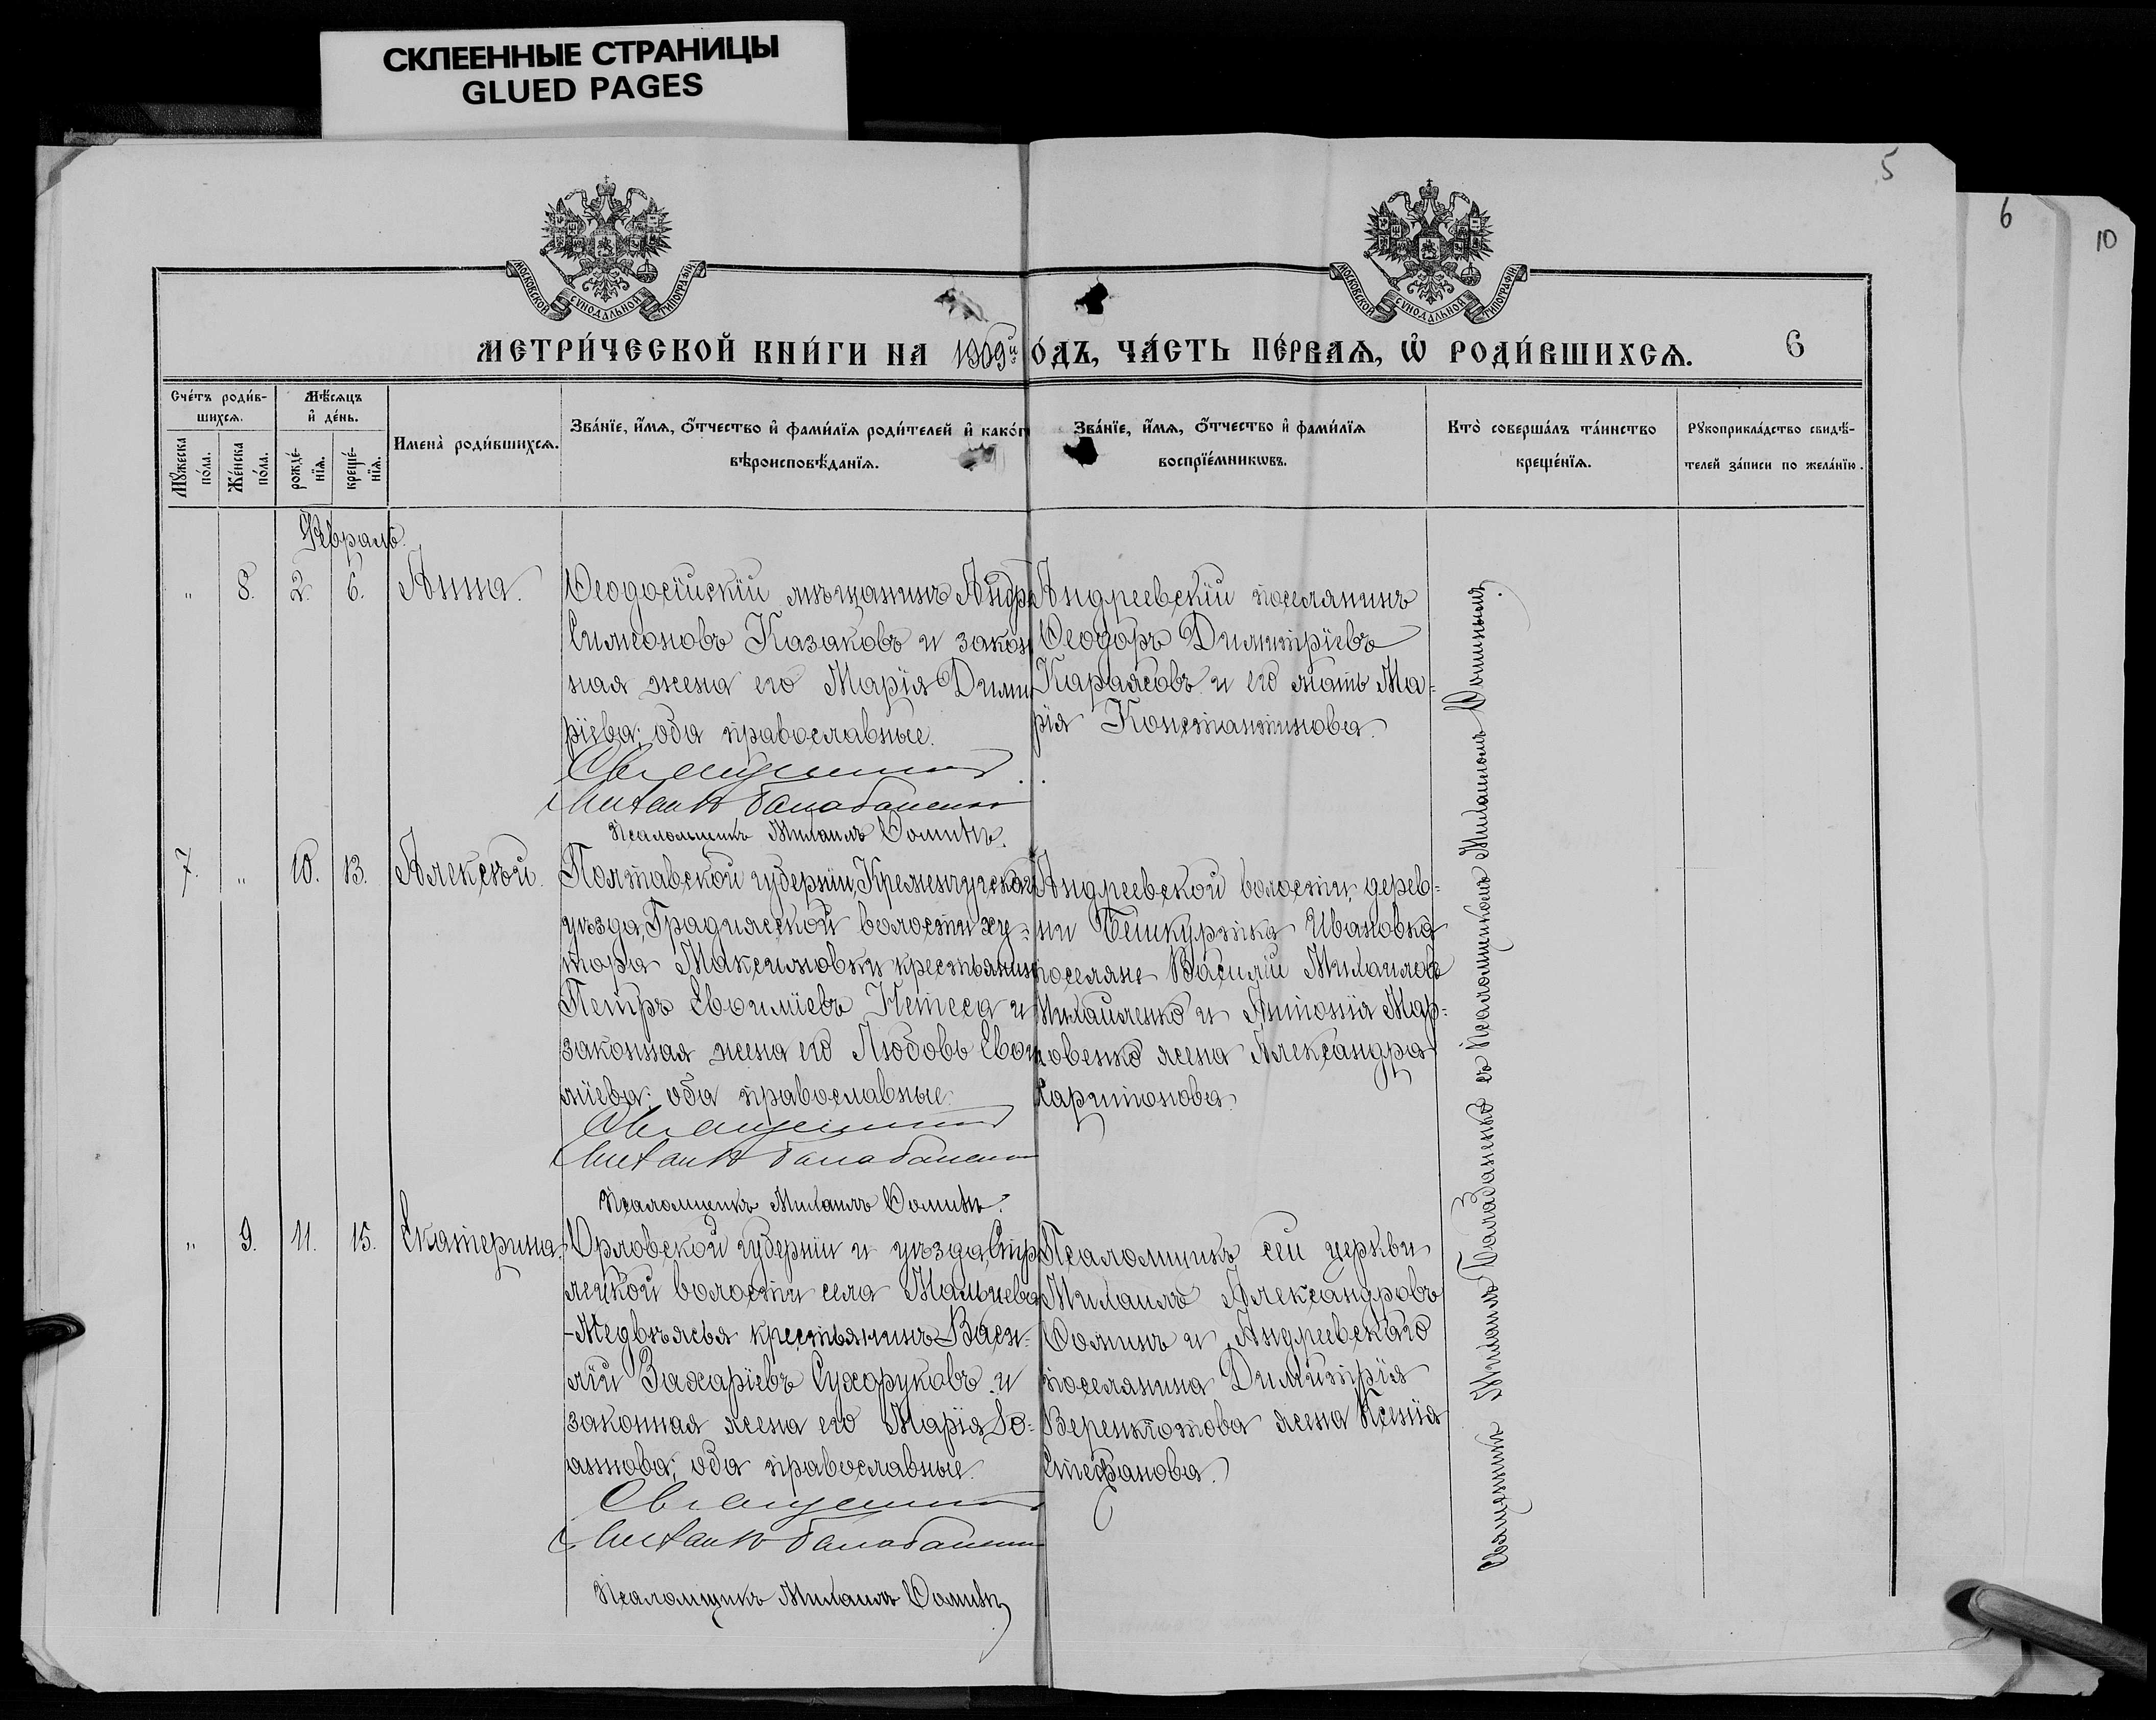 СКЛЕЕННЫЕ СТРАНИЦЫ
GLUED PAGES
5
6
10
МОСКОВСКОЙ СѴНОДАЛЬНОЙ ТИПОГРАФІИ
МОСКОВСКОЙ СѴНОДАЛЬНОЙ ТИПОГРАФІИ
МЕТРИ́ЧЕСКОЙ КНИ́ГИ НА 1909й
О́ДЪ, ЧА́СТЬ ПЕ́РВАѦ, Ѡ҆ РОДИ́ВШИХСѦ.
6
Сче́тъ роди́в-
шихсѧ.
Мꙋ́жеска
по́ла.
Же́нска
по́ла.
Мѣ́сѧцъ
и҆ де́нь.
рожде́-
нїѧ.
креще́-
нїѧ.
Имена̀ роди́вшихсѧ.
Зва́нїе, и҆́мѧ, ѻ҆́тчество и҆ фами́лїѧ роди́телей и҆ како́г
вѣроисповѣ́данїѧ.
Зва́нїе, и҆́мѧ, ѻ҆́тчество и҆ фами́лїѧ
воспрїе́мникѡвъ.
Кто̀ соверша́лъ та́инство
креще́нїѧ.
Рꙋкоприкла́дство свидѣ́-
телей за́писи по жела́нїю.
Февраль.
" 8. 2. 6. Анна.
Ѳеодосійскій мѣщанинъ Андре
Симеоновъ Казаковъ и закон
ная жена его Марія Дими
ріева; оба православные.
Священникъ
Михаилъ Балабаненко
Псаломщикъ Михаилъ Ѳоминъ.
Андреевскій поселянинъ
Ѳеодоръ Димитріевъ
Караясовъ и его мать Ма-
рія Константинова.
7. " 10. 13. Алексѣй.
Полтавской губерніи, Кременчугскаго
уѣзда, Градижской волости ху-
тора Максимовки крестьянинъ
Петръ Евѳиміевъ Нетеса и
законная жена его Любовь Евѳи
міева; оба православные.
Священникъ
Михаилъ Балабаненко
Псаломщикъ Михаилъ Ѳоминъ.
Андреевской волости, дерев-
ни Бешкуртка Ивановка
поселяне Василій Михаиловъ
Михайленко и Антонія Мар-
ковенко жена Александра
Харитонова.
" 9. 11. 15. Екатерина.
Орловской губерніи и уѣзда, Стрѣ
лецкой волости села Мальцева
-Медвѣжья крестьянинъ Васи-
лій Захаріевъ Сухоруковъ и
законная жена его Марія Іо-
аннова; оба православные.
Священникъ
Михаилъ Балабаненко
Псаломщикъ Михаилъ Ѳоминъ
Псаломщикъ сей церкви
Михаилъ Александровъ
Ѳоминъ и Андреевскаго
поселянина Димитрія
жена Ксенія
Стефанова.
Священникъ Михаилъ Балабаненко съ Псаломщикомъ Михаиломъ Ѳоминымъ.